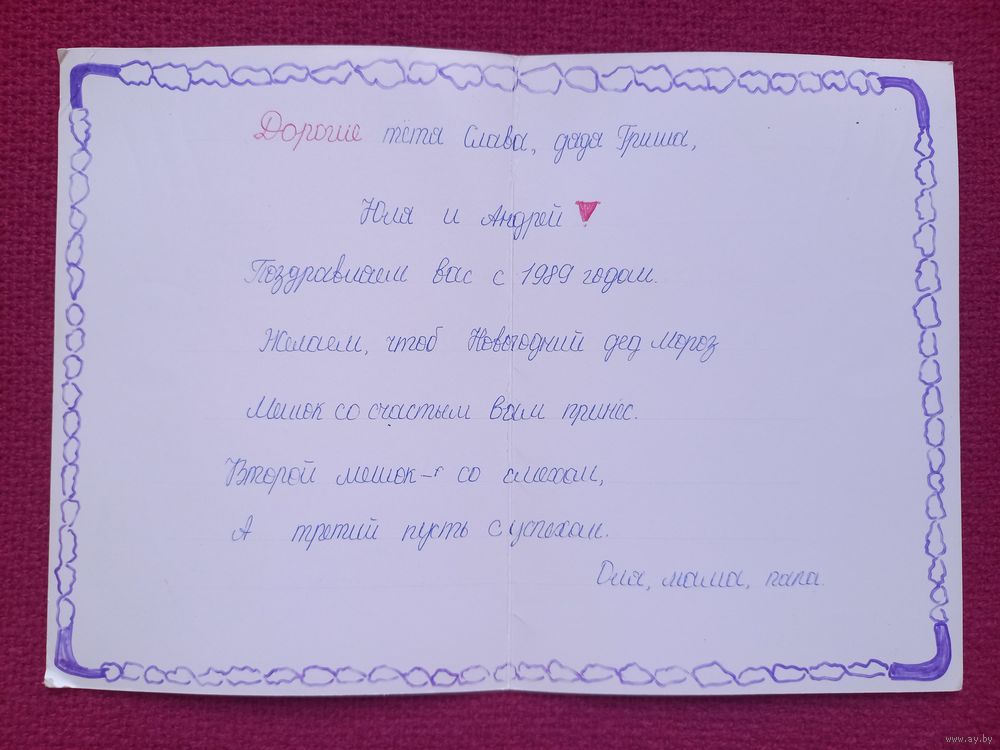 Дорогие тётя Слава, дядя Гриша,
Юля и Андрей
Поздравляем вас с 1989 годом.
Желаем, чтоб Новогодний дед Мороз
Мешок со счастьем вам принёс.
Второй мешок – со смехом,
А третий пусть с успехом.
Оля, мама, папа.
www.ay.by